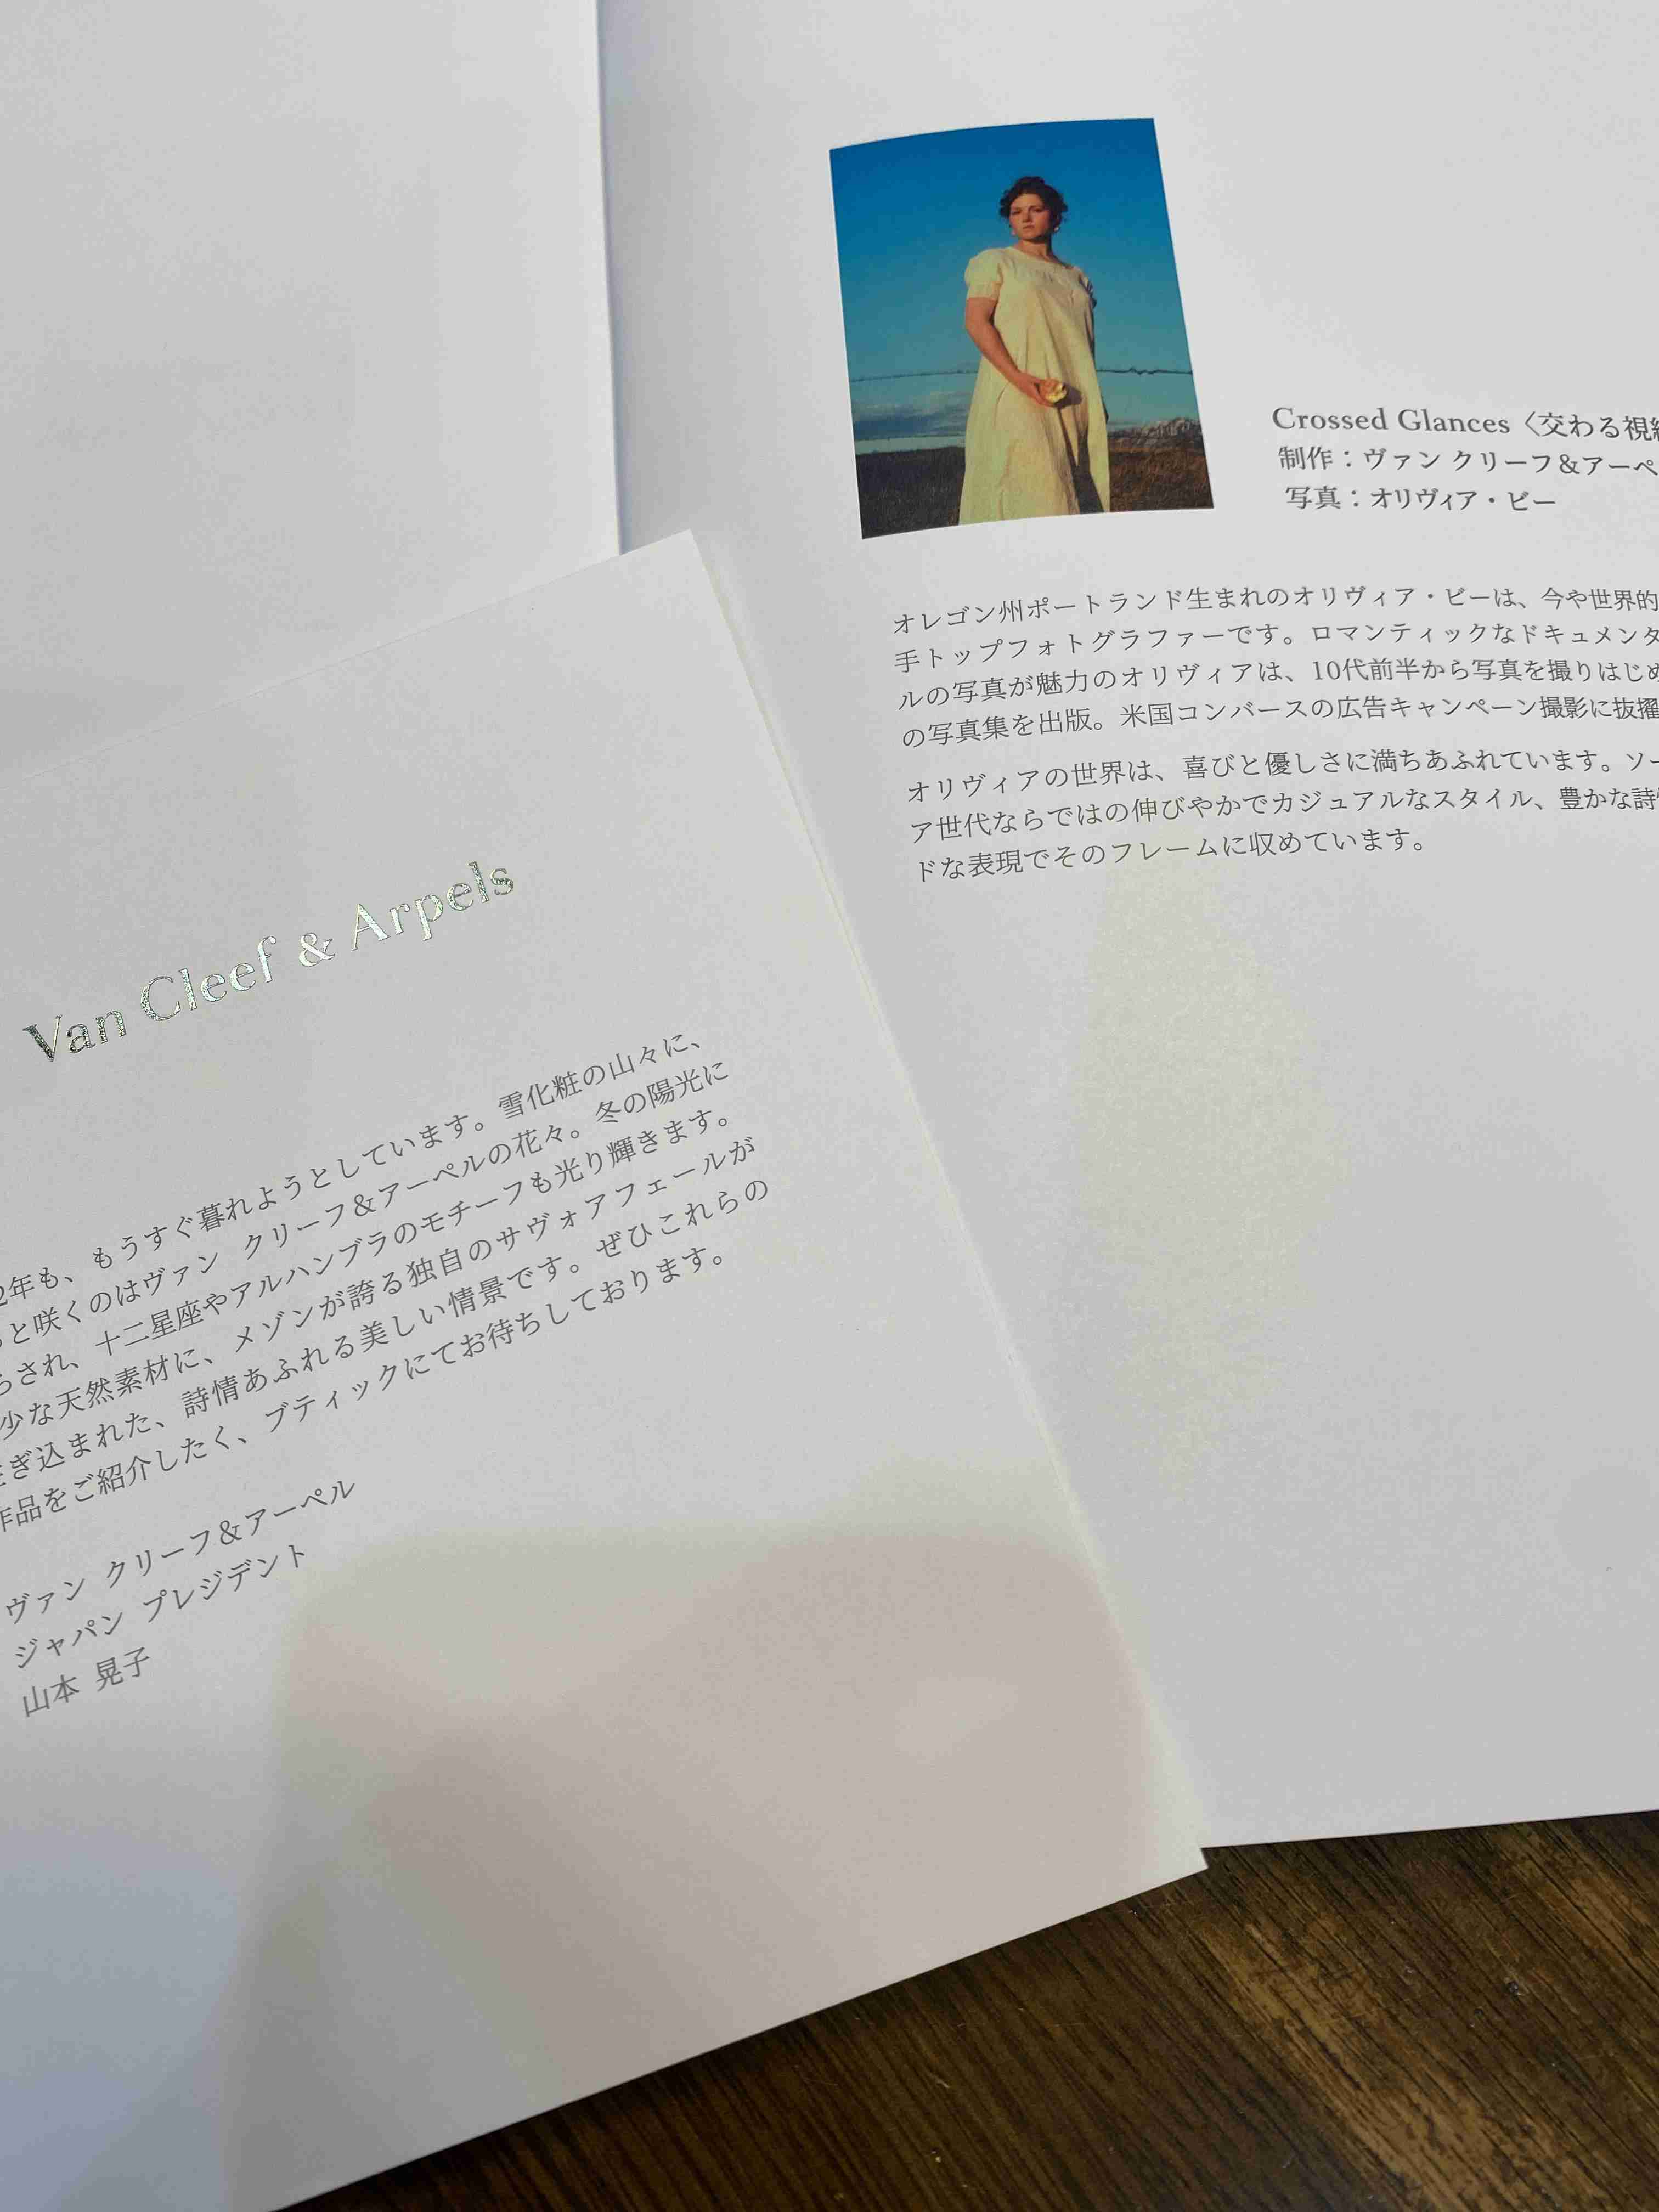 Crossed Glances〈交わる視
制作：ヴァン クリーフ＆アーペ
写真：オリヴィア・ビー
オレゴン州ポートランド生まれのオリヴィア・ビーは、今や世界的
手トップフォトグラファーです。ロマンティックなドキュメンタ
ルの写真が魅力のオリヴィアは、10代前半から写真を撮りはじめ
の写真集を出版。米国コンバースの広告キャンペーン撮影に抜擢
オリヴィアの世界は、喜びと優しさに満ちあふれています。ソー
ア世代ならではの伸びやかでカジュアルなスタイル、豊かな詩
ドな表現でそのフレームに収めています。
Van Cleef & Arpels
2年も、もうすぐ暮れようとしています。雪化粧の山々に、
と咲くのはヴァン クリーフ＆アーペルの花々。冬の陽光に
らされ、十二星座やアルハンブラのモチーフも光り輝きます。
少な天然素材に、メゾンが誇る独自のサヴォアフェールが
ぎ込まれた、詩情あふれる美しい情景です。ぜひこれらの
作品をご紹介したく、ブティックにてお待ちしております。
ヴァン クリーフ＆アーペル
ジャパン プレジデント
山本 晃子